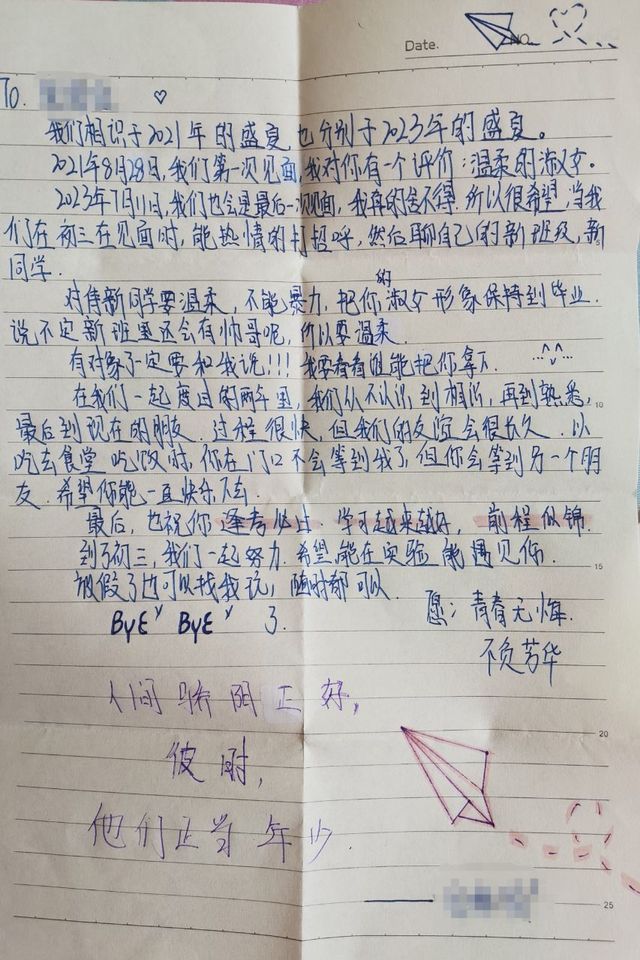 Date.
NO.
To.
我们相识于2021年的盛夏 也分别于2023年的盛夏。
2021年8月28日,我们第一次见面,我对你有一个评价:温柔的淑女。
2023年7月11日,我们也会是最后一次见面,我真的舍不得,所以很希望,当我
们在初三在见面时,能热情的打招呼,然后聊自己的新班级,新
同学.
对待新同学要温柔,不能暴力,把你的淑女形象保持到毕业.
说不定新班里还会有帅哥呢,所以要温柔.
有对象了一定要和我说!!!我要看看谁能把你拿下.
在我们一起度过的两年里,我们从不认识到相识,再到熟悉,
10
最后到现在的朋友.过程很快,但我们的友谊会很长久.以
吃去食堂吃饭时,你在门口不会等到我了,但你会等到另一个朋
友.希望你能一直快乐下去.
最后,也祝你逢考必过 学习越来越好,前程似锦.
到了初三,我们一起努力.希望能在实验能遇见你.
15
放假了也可以找我玩,随时都可以.
ByE ByE 了.
愿:青春无悔.
不负芳华
人间骄阳正好,
20
彼时,
他们正当年少.
25